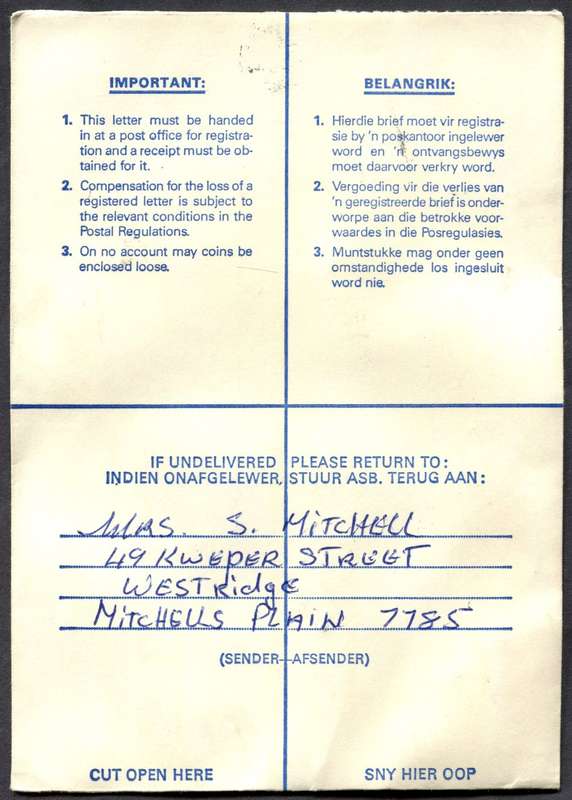 IMPORTANT:
1. This letter must be handed
in at a post office for registra-
tion and a receipt must be ob-
tained for it.
2. Compensation for the loss of a
registered letter is subject to
the relevant conditions in the
Postal Regulations.
3. On no account may coins be
enclosed loose.
BELANGRIK:
1. Hierdie brief moet vir registra-
sie by 'n poskantoor ingelewer
word en 'n ontvangsbewys
moet daarvoor verkry word.
2. Vergoeding vir die verlies van
'n geregistreerde brief is onder-
worpe aan die betrokke voor-
waardes in die Posregulasies.
3. Muntstukke mag onder geen
omstandighede los ingesluit
word nie.
IF UNDELIVERED PLEASE RETURN TO:
INDIEN ONAFGELEWER, STUUR ASB. TERUG AAN:
MRS. S. MITCHELL
49 KWEPER STREET
WESTRidgE
MITCHELLS PLAIN 7785
(SENDER—AFSENDER)
CUT OPEN HERE
SNY HIER OOP